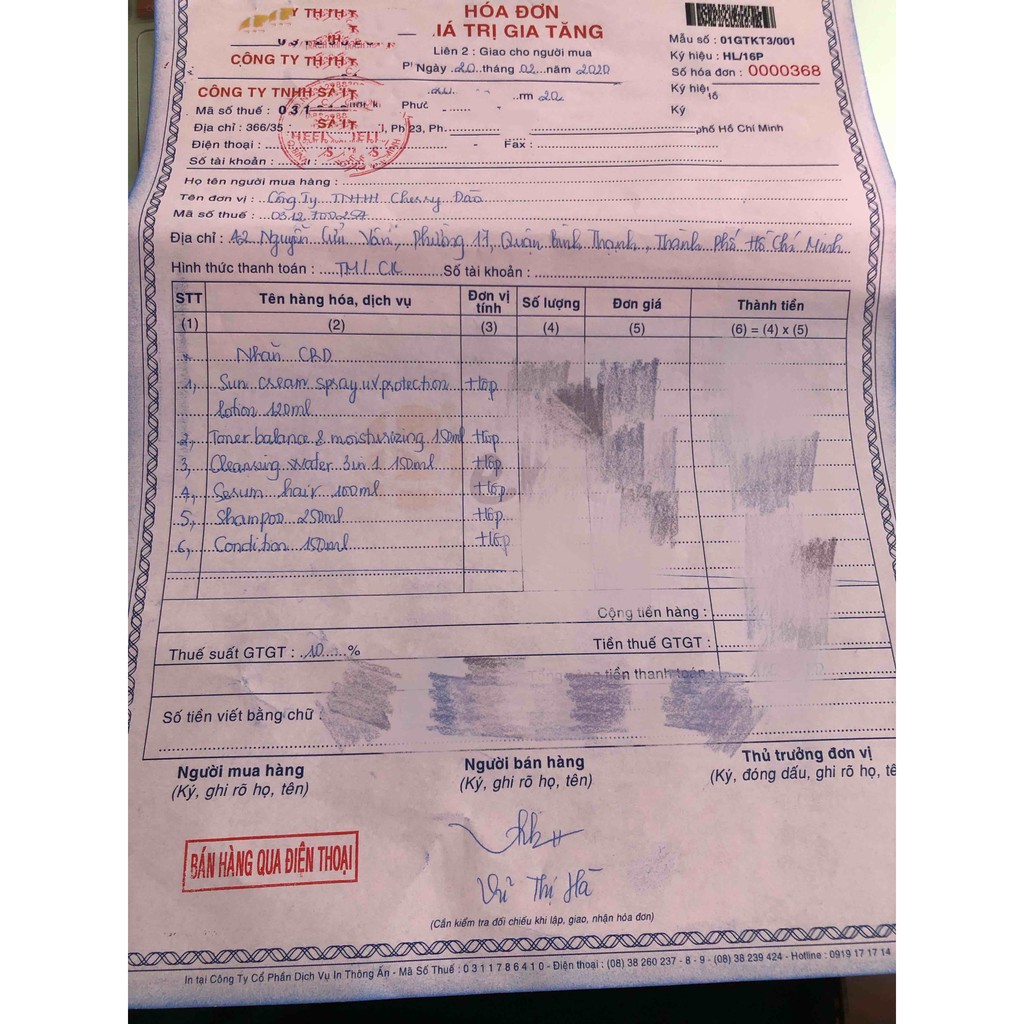 HÓA ĐƠN
IÁ TRỊ GIA TĂNG
Liên 2 : Giao cho người mua
Ngày 20 tháng 02 năm 2020
Mẫu số : 01GTKT3/001
Ký hiệu : HL/16P
Số hóa đơn : 0000368
Ký
CÔNG TY
CÔNG TY TNHH
Mã số thuế : 031
Địa chỉ : 366/35
phố Hồ Chí Minh
Điện thoại :
Fax :
Số tài khoản :
Họ tên người mua hàng :
Tên đơn vị : Công Ty TNHH Cherry Đào
Mã số thuế :
Địa chỉ : A2 Nguyễn Cửu Vân, Phường 17, Quận Bình Thạnh, Thành Phố Hồ Chí Minh
Hình thức thanh toán : TM/CK Số tài khoản :
STT Tên hàng hóa, dịch vụ Đơn vị tính Số lượng Đơn giá Thành tiền
(1) (2) (3) (4) (5) (6) = (4) x (5)
Nhãn CRD
1, Sun cream spray uv protection Hộp
lotion 120ml
2, Toner balance & moisturizing 150ml Hộp
3, Cleansing water 3in1 150ml Hộp
4, Serum hair 100ml Hộp
5, Shampoo 250ml Hộp
6, Condition 150ml Hộp
Cộng tiền hàng :
Thuế suất GTGT : 10 % Tiền thuế GTGT :
Tổng cộng tiền thanh toán :
Số tiền viết bằng chữ :
Người mua hàng
(Ký, ghi rõ họ, tên)
Người bán hàng
(Ký, ghi rõ họ, tên)
Thủ trưởng đơn vị
(Ký, đóng dấu, ghi rõ họ, tê
BÁN HÀNG QUA ĐIỆN THOẠI
Vũ Thị Hà
(Cần kiểm tra đối chiếu khi lập, giao, nhận hóa đơn)
In tại Công Ty Cổ Phần Dịch Vụ In Thông Ấn - Mã Số Thuế : 0311786410 - Điện thoại : (08) 38 260 237 - 8 - 9 - (08) 38 239 424 - Hotline : 0919 17 17 14